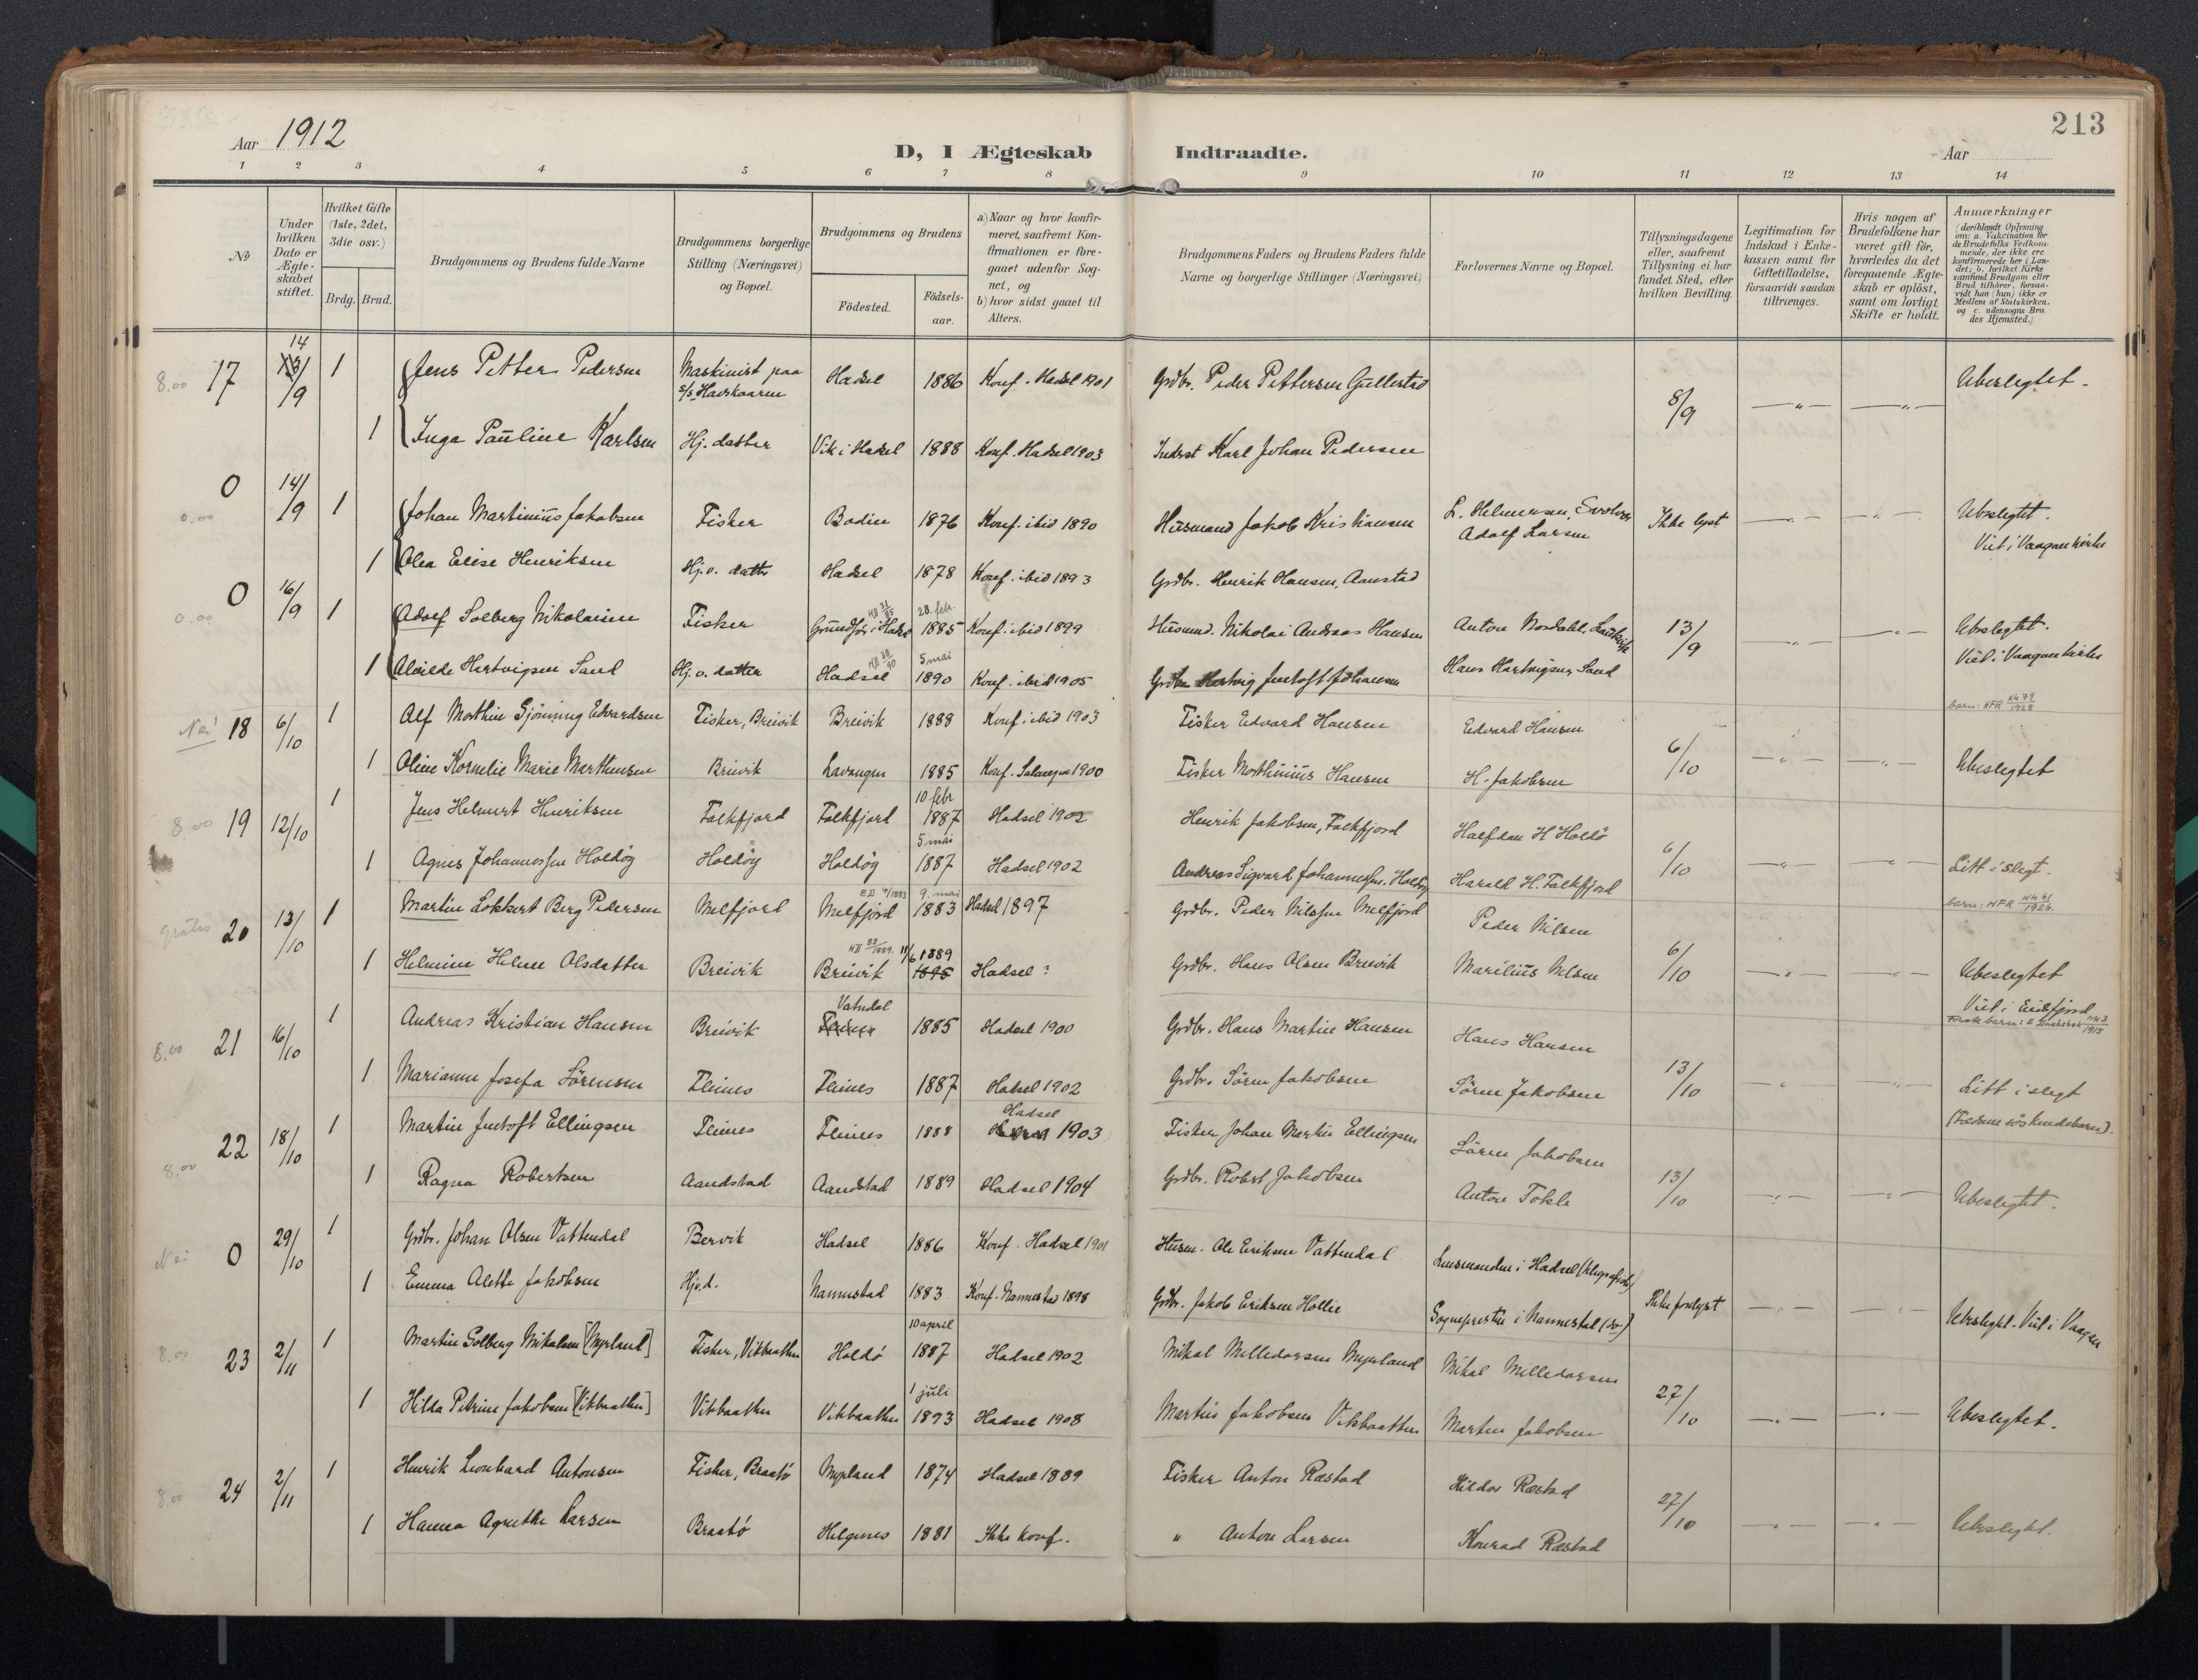 213
Aar 1912
D, I Ægteskab Indtraadte.
Aar
1 2 3 4 5 6 7 8 9 10 11 12 13 14
No
Under hvilken Dato er Ægte-skabet stiftet.
Hvilket Gifte (1ste, 2det, 3die osv.)
Brdg. Brud.
Brudgommens og Brudens fulde Navne
Brudgommens borgerlige Stilling (Næringsvei) og Bopæl.
Brudgommens og Brudens
Födested.
Födsels-aar.
a) Naar og hvor konfir-meret, saafremt Kon-firmationen er fore-gaaet udenfor Sog-net, og
b) hvor sidst gaaet til Alters.
Brudgommens Faders og Brudens Faders fulde Navne og borgerlige Stillinger (Næringsvei)
Forlovernes Navne og Bopæl.
Tillysningsdagene eller, saafremt Tillysning ei har fundet Sted, efter hvilken Bevilling.
Legitimation for Indskud i Enke-kassen samt for Giftetilladelse, forsaavidt saadan tiltrænges.
Hvis nogen af Brudefolkene har været gift før, hvorledes da det foregaaende Ægte-skab er oplöst, samt om lovligt Skifte er holdt.
Anmærkninger (deriblandt Oplysning om: a. Vakcination for de Brudefolks Vedkom-mende, der ikke ere konfirmerede her i Lan-det; b. hvilket Kirke samfund Brudgom eller Brud tilhörer, forsaa-vidt han (hun) ikke er Medlem af Statskirken, og c. udensogns Bru des Hjemsted.)
8.00 17 14/9 1 Jens Petter Pedersen Maskinist paa S/S Havskaaren Hadsel 1886 Konf. Hadsel 1901 Grdbr. Peder Pettersen Gullestad 8/9 Ubeslegtet.
1 Inga Pauline Karlsen Hj. datter Vik i Hadsel 1888 Konf. Hadsel 1903 Inderst Karl Johan Pedersen
0.00 0 14/9 1 Johan Martinius Jakobsen Fisker Bodin 1876 Konf. ibid 1890 Husmand Jakob Kristiansen L. Helmersen, Svolvær Adolf Larsen Ikke lyst Ubeslegtet. Viet i Vaagan kirke
1 Olea Elise Henriksen Hj. v. datter Hadsel 1878 Konf. ibid 1893 Grdbr. Henrik Hansen, Aanstad
0.00 0 16/9 1 Adolf Solberg Nikolaisen Fisker Grundfør i Hadsel 28. febr. 1885 Konf. ibid 1899 Husmd. Nikolai Andreas Hansen Anton Nordahl, 13/9 Ubeslegtet. Viet i Vaagan kirke
1 Hartvigsen Sand Hj. v. datter Hadsel 5 mai 1890 Konf. ibid 1905 Grdbr. Hartvig Jentoft Johansen Hans Hartvigsen, Sand
Nei 18 6/10 1 Alf Morthin Gjønning Edvardsen Fisker, Breivik Breivik 1888 Konf. ibid 1903 Fisker Edvard Hansen Edvard Hansen 6/10 barn: HFR 79/1928
1 Oline Kornelie Marie Marthinsen Breivik Lavangen 1885 Konf. Salangen 1900 Fisker Morthinius Hansen H. Jakobsen Ubeslegtet
8.00 19 12/10 1 Jens Helmert Henriksen Falkfjord Falkfjord 10 febr 1887 Hadsel 1902 Henrik Jakobsen, Falkfjord Halfdan H Holdö 6/10 Litt i slegt.
1 Agnes Johannessen Holdøy Holdöy Holdöy 5 mai 1887 Hadsel 1902 Andreas Sigvard Johannessen. Holdöy Harald H. Falkfjord
gratis 20 13/10 1 Martin Lokkert Berg Pedersen Melfjord Melfjord 9. mai 1883 Hadsel 1897 Grdbr. Peder Nilssen Melfjord Peder Nilsen 6/10 barn: HFR 1926.
1 Helmine Helene Olsdatter Breivik Breivik 11/6 1889 Hadsel? Grdbr. Hans Olsen Breivik Marilius Nilsen Ubeslegtet Viet i Eidsfjord
8.00 21 16/10 1 Andreas Kristian Hansen Breivik Vatndal 1885 Hadsel 1900 Grdbr. Hans Martin Hansen Hans Hansen 13/10 1915
1 Marianne Josefa Sörensen Fleines Fleines 1887 Hadsel 1902 Grdbr. Sören Jakobsen Sören Jakobsen Litt i slegt
8.00 22 18/10 1 Martin Jentoft Ellingsen Fleines Fleines 1888 Hadsel 1903 Fisker Johan Martin Ellingsen Sören Jakobsen 13/10 söskendebarn).
1 Ragna Robertsen Aandstad Aandstad 1889 Hadsel 1904 Grdbr. Robert Jakobsen Anton Tokle Ubeslegtet.
Nei 0 29/10 1 Grdbr. Johan Olsen Vattendal Bervik Hadsel 1886 Konf. Hadsel 1901 Husm. Ole Eriksen Vattendal Lensmanden i Hadsel Ikke forelyst
1 Emma Alette Jakobsen Hjv.d. Nannestad 1883 Konf. Nannestad 1898 Grdbr. Jakob Eriksen Hollie Sognepresten i Nannestad Ubeslegtet. Viet i Vaagan
8.00 23 2/11 1 Martin Solberg Mikalsen [Myrland] Fisker, Vikbaatten Holdö 10 april 1887 Hadsel 1902 Mikal Melledorsen Myrland Mikal Melledorsen 27/10
1 Hilda Petrine Jakobsen [Vikbaatten] Vikbaatten Vikbaatten 1 juli 1893 Hadsel 1908 Martin Jakobsen Vikbaatten Martin Jakobsen Ubeslegtet.
8.00 24 2/11 1 Henrik Leonhard Antonsen Fisker, Braatö Myrland 1874 Hadsel 1889 Fisker Anton Ræstad Hildor Ræstad 27/10
1 Hanna Agnethe Larsen Braatö Helgenes 1881 Ikke konf. " Anton Larsen Konrad Ræstad Ubeslegtet.